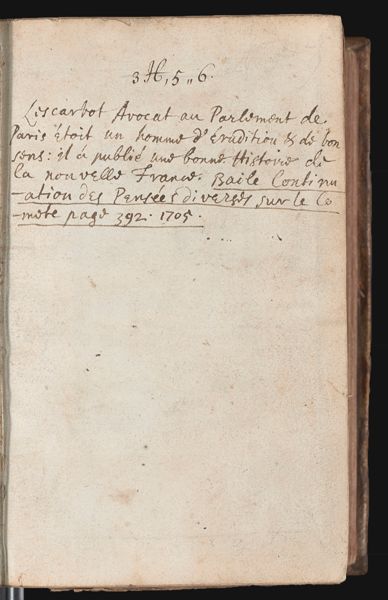 3 H, 5 „ 6.
Lescarbot Avocat au Parlement de
Paris étoit un homme d'érudition & de bon
sens: il à publié une bonne Histoire de
la nouvelle France. Baile Continu
-ation des Pensées diverses sur le Co
-mete page 392. 1705.